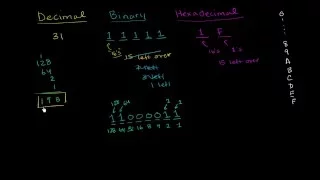 Decimal Binary Hexadecimal
31 1 1 1 1 1 1 F
16's 15 left over 16's 1's
7 left
3 left
1 left
15 left over
1
128
64
2
1
195
128 64 2 1
1 1 0 0 0 0 1 1
128 64 32 16 8 4 2 1
0
1
8
9
A
B
C
D
E
F